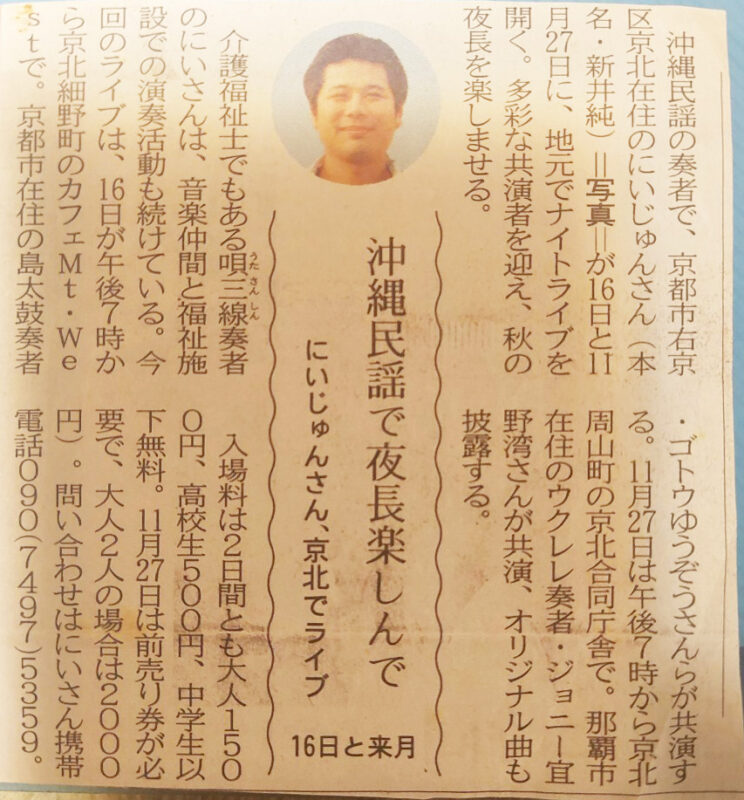 沖縄民謡で夜長楽しんで
にいじゅんさん、京北でライブ
16日と来月
沖縄民謡の奏者で、京都市右京
区京北在住のにいじゅんさん（本
名・新井純）＝写真＝が16日と11
月27日に、地元でナイトライブを
開く。多彩な共演者を迎え、秋の
夜長を楽しませる。
介護福祉士でもある唄三線奏者
うたさんしん
のにいさんは、音楽仲間と福祉施
設での演奏活動も続けている。今
回のライブは、16日が午後７時か
ら京北細野町のカフェＭｔ・Ｗｅ
ｓｔで。京都市在住の島太鼓奏者
・ゴトウゆうぞうさんらが共演す
る。11月27日は午後７時から京北
周山町の京北合同庁舎で。那覇市
在住のウクレレ奏者・ジョニー宜
野湾さんが共演、オリジナル曲も
披露する。
入場料は２日間とも大人１５０
０円、高校生５００円、中学生以
下無料。11月27日は前売り券が必
要で、大人２人の場合は２０００
円）。問い合わせはにいさん携帯
電話０９０(７４９７)５３５９。